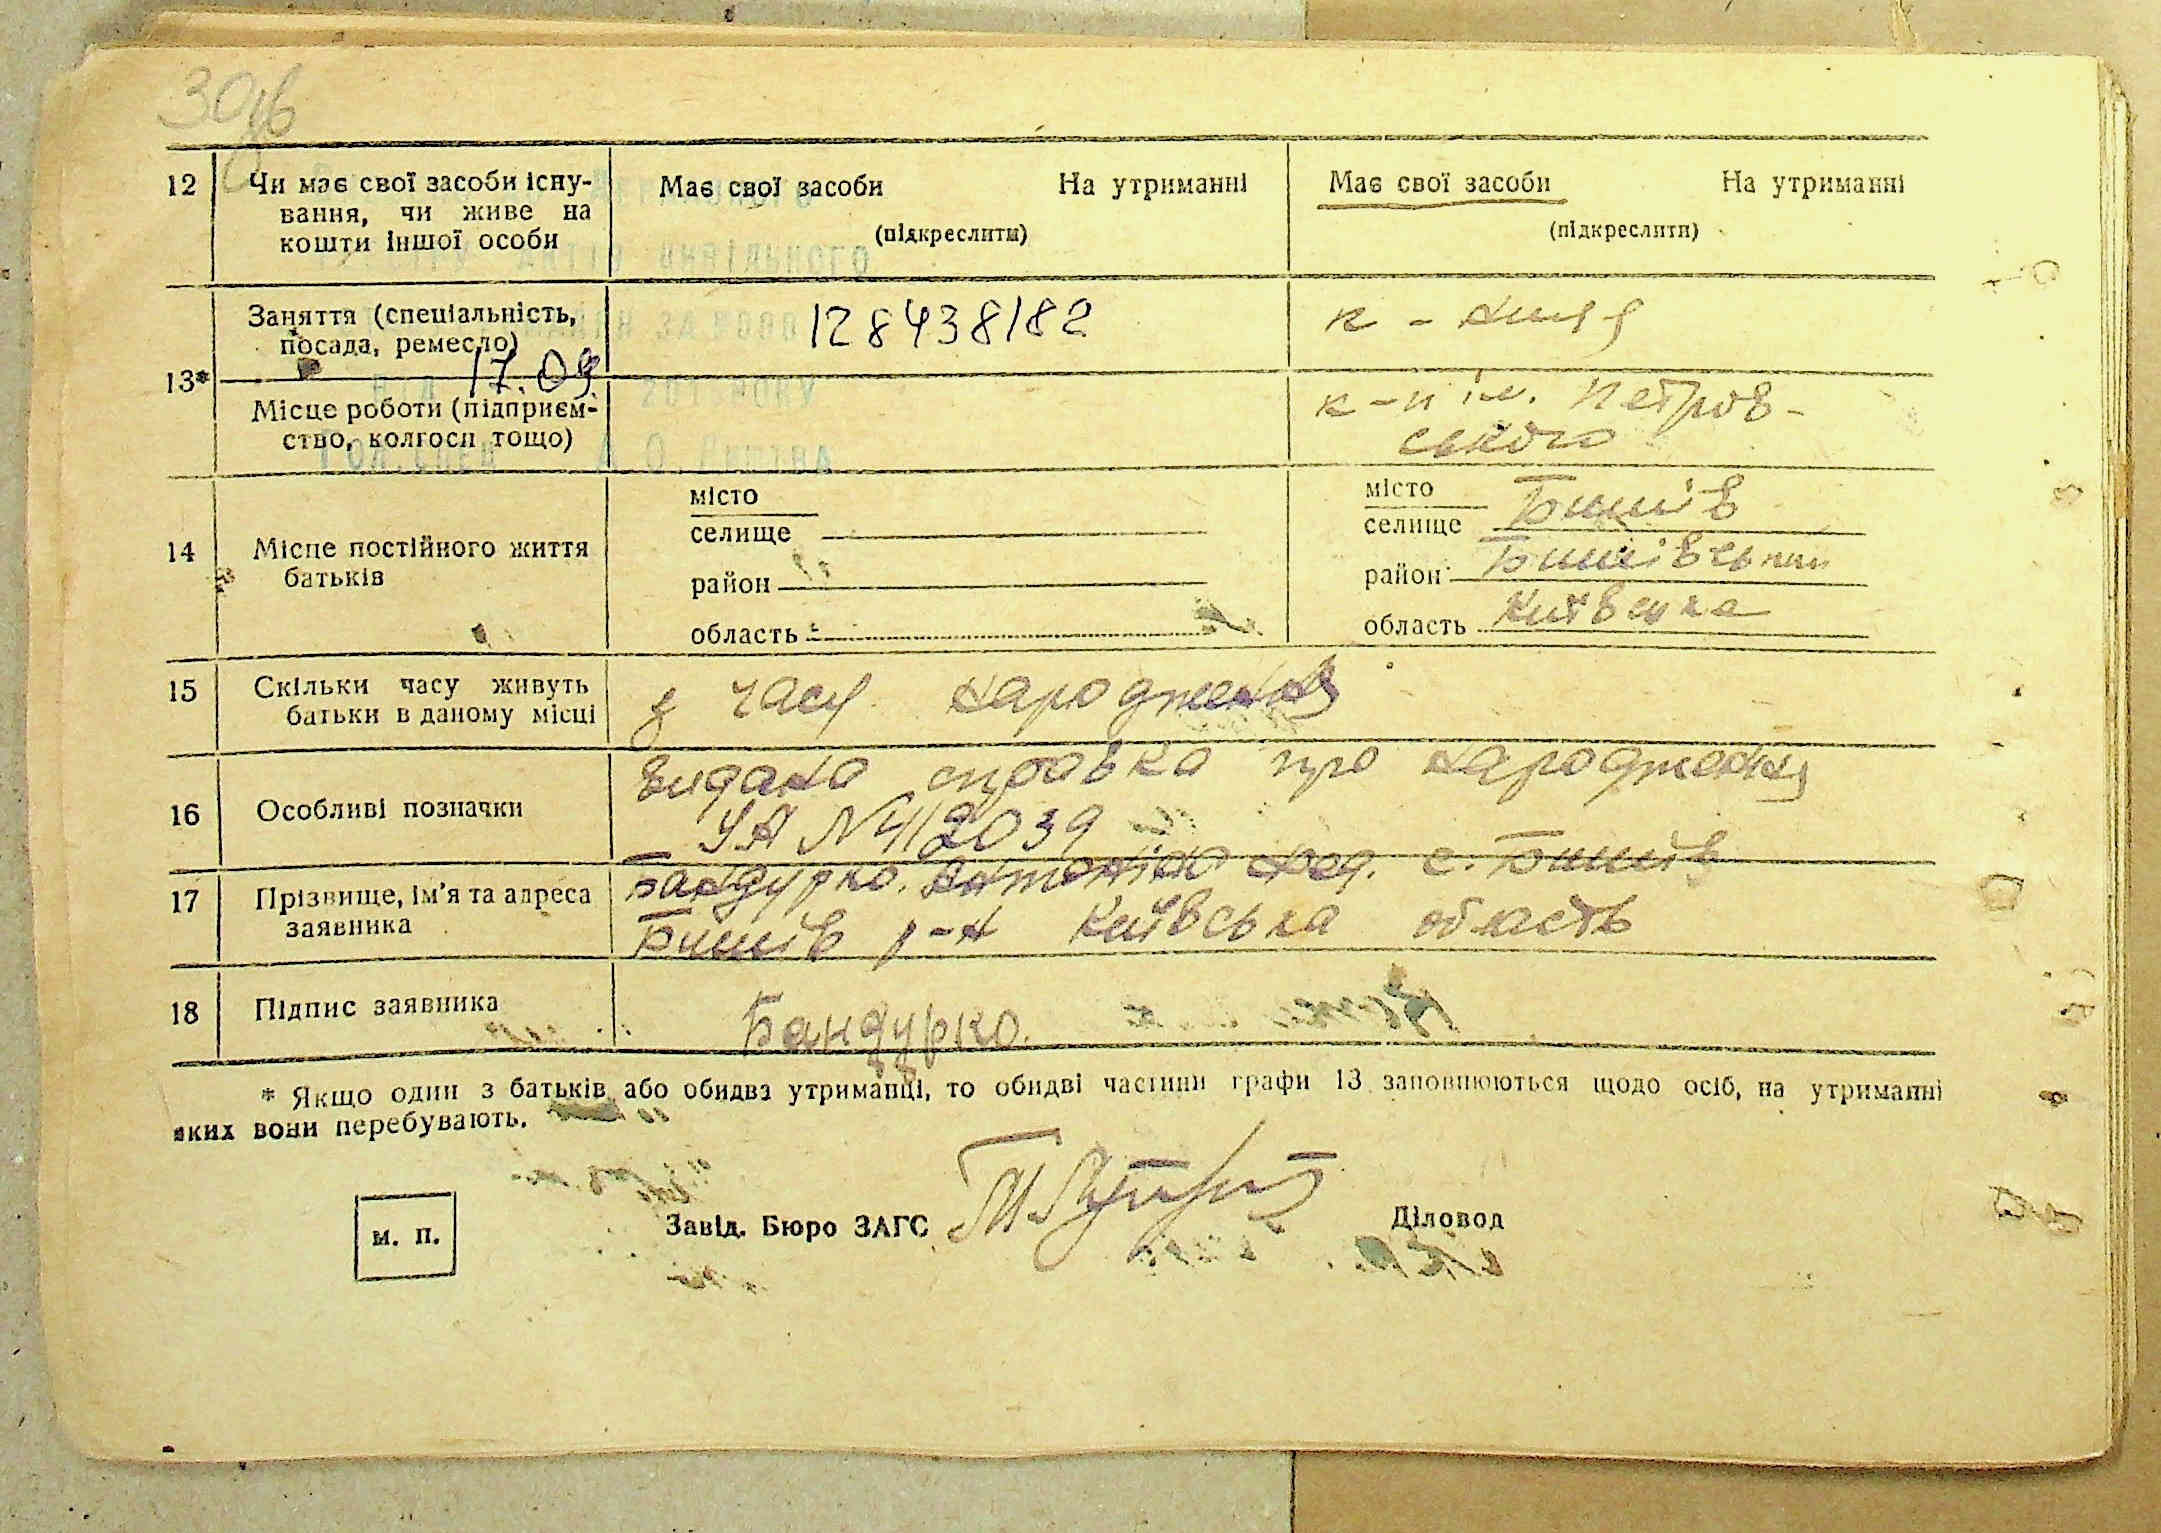 30зв
12 Чи має свої засоби існу-
вання, чи живе на
кошти іншої особи
Має свої засоби На утриманні
(підкреслити)
Має свої засоби На утриманні
(підкреслити)
13*
Заняття (спеціальність,
посада, ремесло)
17.09
128438182
Місце роботи (підприєм-
ство, колгосп тощо)
к-п ім. Петров-
ського
14 Місце постійного життя
батьків
місто
селище
район
область
місто
селище Бишів
район Бишівський
область Київська
15 Скільки часу живуть
батьки в даному місці
з часу народження
16 Особливі позначки
видана справка про народження
УА № 412039
17 Прізвище, ім'я та адреса
заявника
Бандурко с. Бишів
Бишів р-н Київська область
18 Підпис заявника
Бандурко.
* Якщо один з батьків або обидва утриманці, то обидві частини графи 13 заповнюються щодо осіб, на утриманні
яких вони перебувають.
М. П.
Завід. Бюро ЗАГС
Діловод